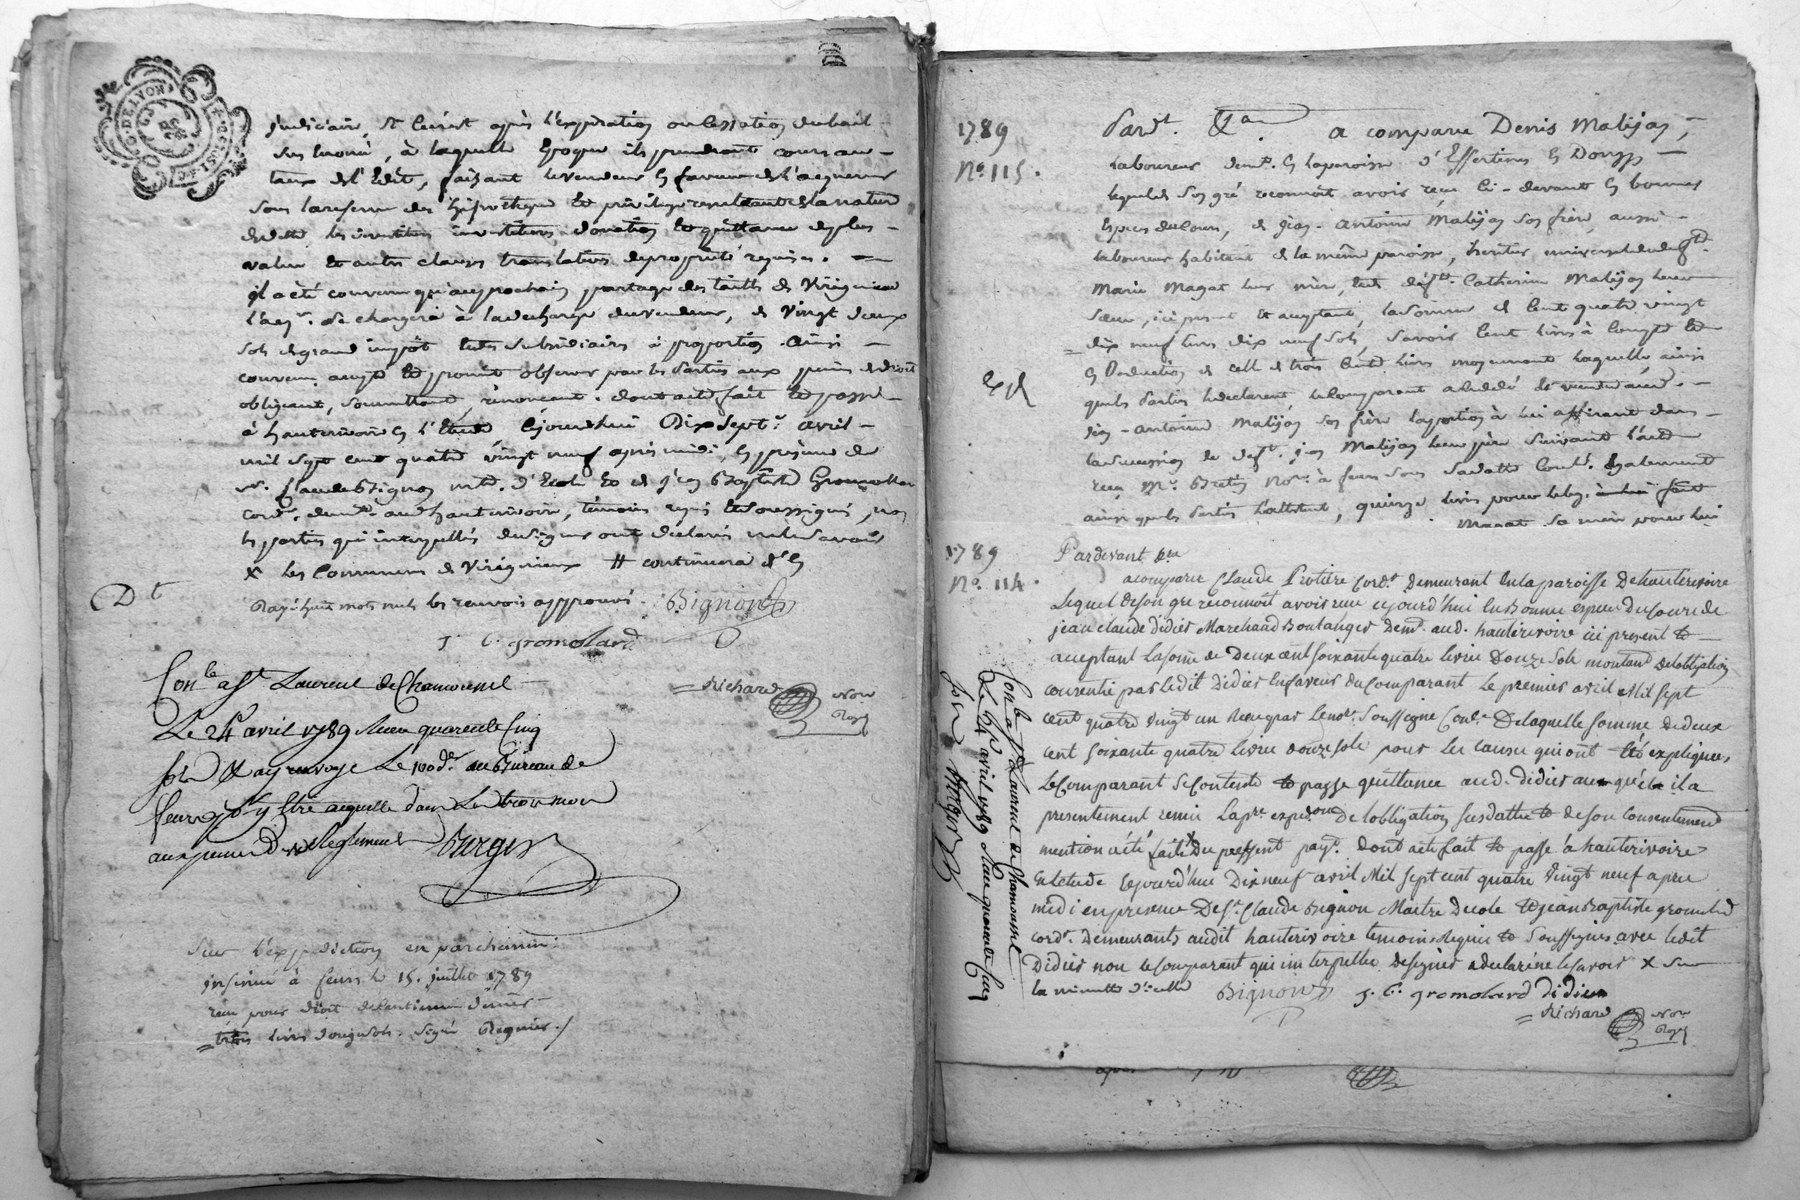 G. DE LYON
judiciair, & seront après l'expiration ou cessation du bail
à laquelle Epoque ils prendront cours au
taux de l'Edit, faisant le vendeur en faveur de l'acquereur
sous la reserve des hipotheque et privilege resultants de la nature
investitures donation et quittance de plus
value et autres clauses translatives de proprieté requises.
il a été convenu qu'au prochain partage des tailles de Virigneux
l'aqr. se chargera à la decharge du vendeur, de Vingt deux
sols de grand impôt et subsidiaires à proportion. Ainsi
convenu accepté et promis observer par les parties aux peines de droit
obligeant, soumettant renonçant. dont acte fait et passé
à hauterivoire en l'Etude Cejourdhui Dix sept avril
mil sept cent quatre vingt neuf apres midi, En présence de
sr. Claude Bignon mtre. d'Ecole et de Jean Baptiste Gromollard
cordr. demt. aud hauterivoire, témoins requis et soussignés, non
les parties qui interpellés de signer ont declaré ne le savoir
x les Communes de Virigneux # continuera d'en
Dt
Rayé huit mots nuls les renvois approuvés. Bignon
J. C. gromolard
= Richard Nore Royal
Conlé a St Laurent de Chamousset
Le 24 avril 1789 Reçu quarente Cinq
sols & ay renvoye Le 100d. au Bureau de
feurs p. y etre acquitté dans les trois mois
aux peines du Reglement Burger
Sur l'expedition en parchemin:
insinué à feurs le 15. juillet 1789
reçu pour droit de centieme denier
trois livres douze sols. signé Regnier./
1789
No. 115.
Pardt. a comparu Denis Malijay,
laboureur demt. en la paroisse d'Essertines en Donzy
lequel de son gré reconnoit avoir reçu ci-devant en bonnes
Especes de cours, de jean-antoine Malijay son frère, aussi
laboureur habitant de la même paroisse, heritier universel de defte.
Marie Magat leur mère, et defte. Catherine Malijay leur
sœur, ici present et acceptant, la somme de Cent quatre vingt
dix neuf livres dix neuf sols, savoir Cent livres à Compte et
en Deduction de celle de trois Cents livres moyennant laquelle ainsi
que les parties le declarent le Comparant a cedé et vendu aud.
jean-antoine Malijay son frère la portion à lui afferant dans
la succession de deft. jean Malijay leur père suivant l'acte
reçu Me. Bretin Nore. à feurs sous sa datte Conlé. Egalement
ainsi que les parties l'attestent, quinze livres pour
Magat sa mère pour lui
1789
No. 114.
Pardevant &ra
acomparu Claude Protiere Cordr. demeurant En la paroisse de hauterivoire
Lequel de son gré reconnoit avoir reçu cejourd'hui En Bonne espece Du Cours de
jean claude didier Marchand Boulanger demt. aud. hauterivoire ici present et
acceptant La some de Deux cent soixante quatre livres Douze Sols montant De l'obligation
consentie par ledit Didier En faveur du Comparant Le premier avril Mil sept
cent quatre vingt un Reçu par Le nore. Soussigné Conle. De laquelle somme de deux
cent soixante quatre livres douze sols pour les causes qui ont été expliqués,
Le Comparant se Contente et passe quittance aud. didier auquel il a
presentement remis La pre. expedon De l'obligation Susdatté et de son Consentement
mention a été faite x Du present payt. Dont acte fait et passé à hauterivoire
En Letude Cejourd'hui Dix neuf avril Mil sept cent quatre Vingt neuf apres
midi en presence De Sr. Claude Bignon Maitre Decole et jean Baptiste gromolard
cordr. Demeurants audit hauterivoire temoins Requis et Soussignés avec ledit
Didier non le Comparant qui interpellée de signer a declaré ne le savoir x Sur
la minutte d'icelle Bignon J. C. gromolard didier
= Richard Nore Royal
Conlé a St Laurent de Chamousset
Le 24 avril 1789 Reçu quarente Cinq
sols Burger